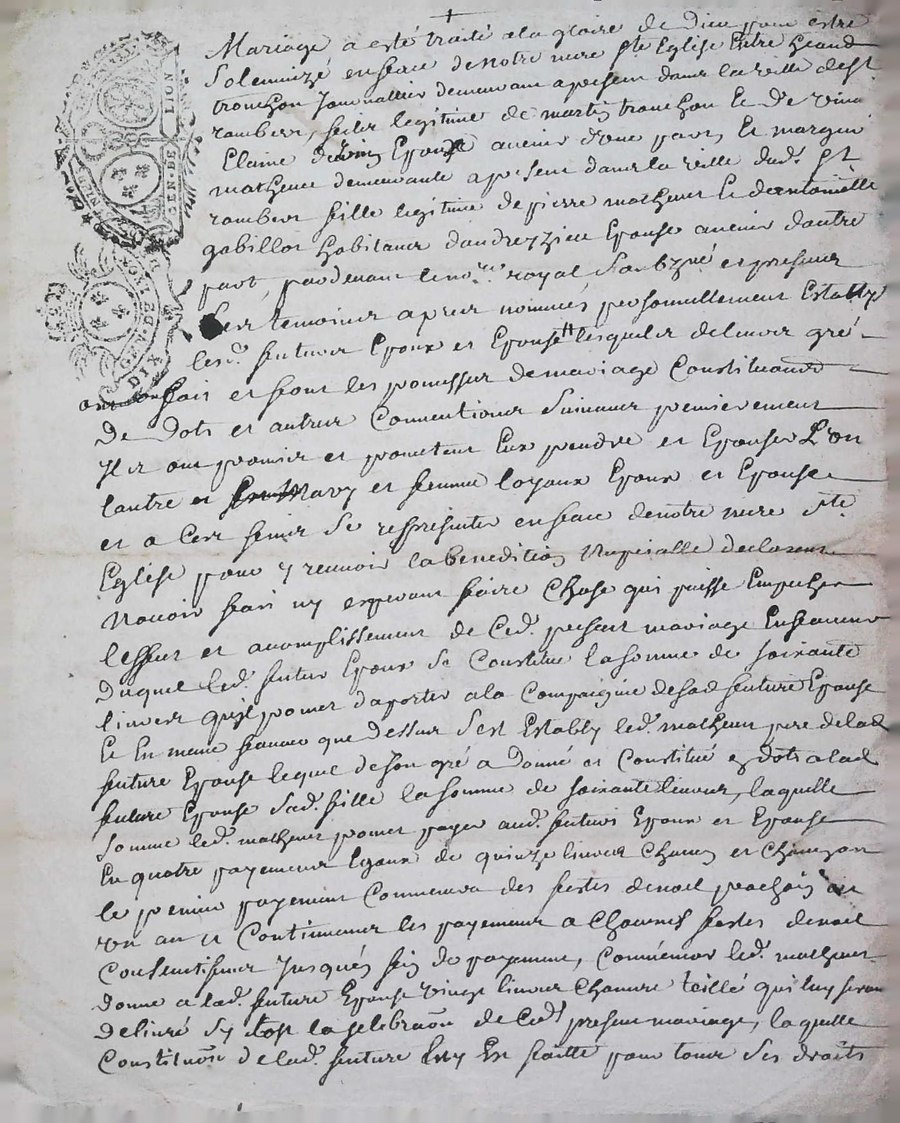 +
Mariage a esté traité a la gloire de Dieu pour estre
Solemnizé en face de notre mere ste Eglise Entre Jeand
tronchon Journallier demeurant apresent dans la ville de st
rambert, fils legitime de martin tronchon Et de
Claine Epouze avenir d'une part, Et margueri
matheue demeurante apresent dans la ville dud. St
rambert fille legitime de pierre matheues Et dantoinette
gabillot habitants dandrezieu Epouse avenir dautre
part, pardevant le no.re royal Soubzné et presents
Les temoins apres nommés personnellement Estably
lesd. futurs Epoux et Epouse lesquels de leurs gré
ont fait et font les promesses de mariage Constitutions
De Dots et autres Conventions Suivantes premierement
Ils ont promis et promettent Eux prendre et Epouser L'un
lautre et Mary et femme loyaux Epoux et Epouse
et a Ces fins Se representer en face de notre mere ste
Eglise pour y recevoir la benediction Nuptialle declarent
Navoir fait ny esperant faire Chose qui puisse Empecher
l'effet et acomplissement de Ced. present mariage En faveur
Duquel led. futur Epoux Se Constitue la Somme de soixante
livres quil promet daporter a la Compagnie de sad future Epouse
Et En meme faveur que dessus S'est Estably led. matheues pere de lad
future Epouse lequel de son gré a Donné et Constitué en dots a lad
future Epouse Sad. fille la somme de soixante livres, laquelle
Somme led. matheues promet payer aud. futurs Epoux et Epouse
En quatre payements Egaux de quinze livres Chacun et Chacun an
le premier payement Commencera des festes de noel prochain en
un an et Continuer les payements a Chacunes festes de noel
Consecutives Jusques fin de payement, Comme encor led. matheues
donne a lad. future Epouse vingt livres Chanvre teillé qui luy seront
Delivré sy tost la selebraôn de Ced. present mariage, laquelle
Constituôn de lad. future luy Est faitte pour tous Ses droits
GEN·DE LION
DIX
GEN DE
DEUX SOLS